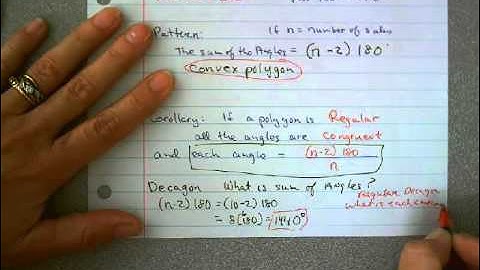 Pattern: if n = number of sides
The sum of the Angles = (n-2)180°
Convex polygon
Corollary: If a polygon is Regular
all the angles are congruent
and each angle = (n-2)180
n
Decagon What is sum of Angles?
(n-2)180 = (10-2)180
= 8(180) = 1440°
Regular Decagon
what is each